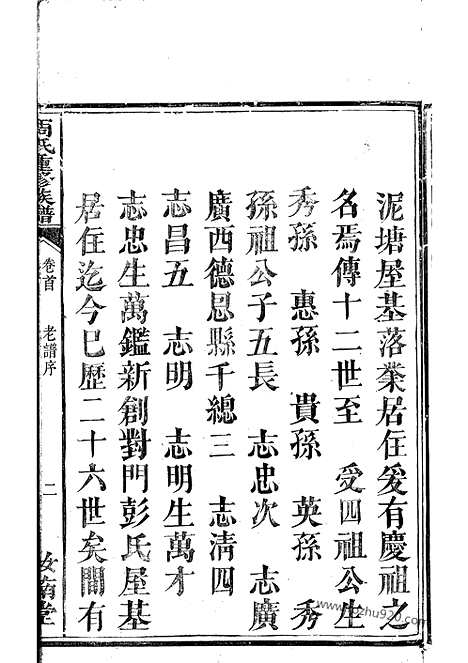 泥塘屋基落業居住爰有慶祖之
名焉傳十二世至 受四祖公生
秀孫 惠孫 貴孫 英孫 秀
孫祖公子五長 志忠次 志廣
廣西德恩縣千總三 志清四
志昌五 志明 志明生萬才
志忠生萬鑑新創對門彭氏屋基
居住迄今已歷二十六世矣間有
周氏重修族譜 卷首 老譜序 二 汝南堂